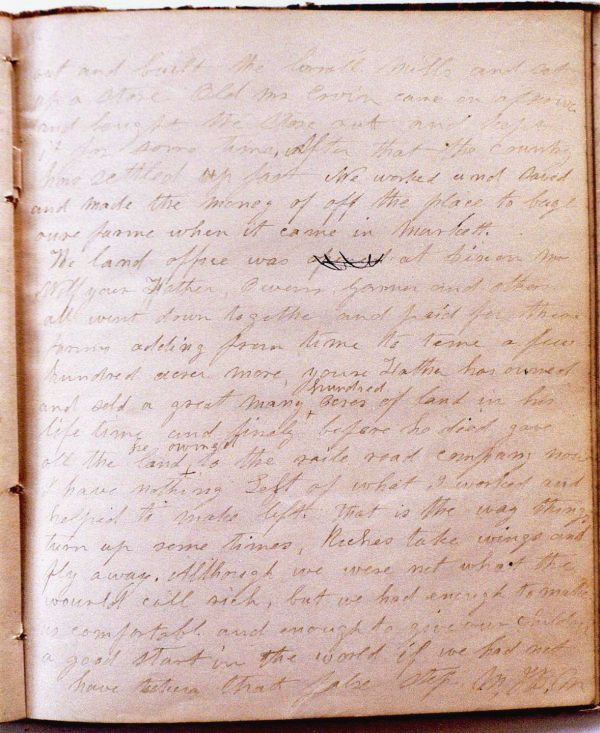 out and built the mills and set
up a store Old Mr Ervin came on
and bought the store out and kept
it for some time, After that the Country
has settled up fast We worked and saved
and made the money of off the place to buye
oure farme when it came in Markett.
The land office was at Dixon Mr
your Father, Owens and others
all went down togethe and paid for there
farms adding from time to time a few
hundred acres more, youre Father has owned
and sold a great many hundred acres of land in his
life time and finely before he died gave
all the land he owinged to the raile road company now
I have nothing Left of what I worked and
helped to make left. that is the way things
turn up some times, Riches take wings and
fly away. Allthough we were not what the
would call rich, but we had enough to make
us comfortabl and enough to give our children
a good start in the world if we had not
have taken that false step